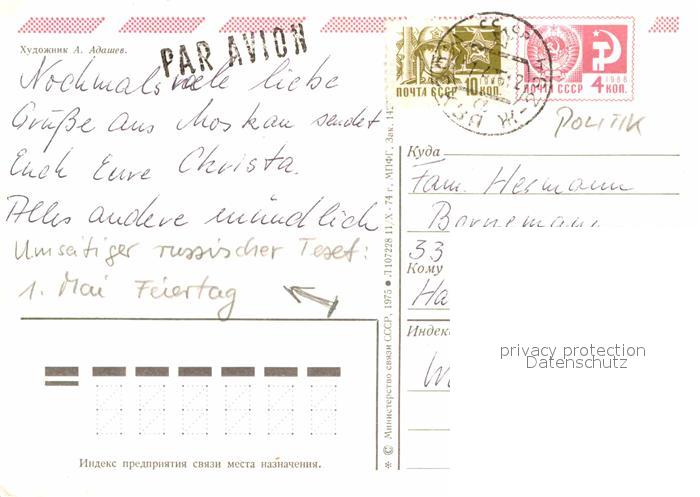 Художник А. Адашев.
PAR AVION
Nochmals viele liebe
Grüße aus Moskau sendet
Euch Eure Christa.
Alles andere mündlich
Umseitiger russischer Text:
1. Mai Feiertag
Индекс предприятия связи места назначения.
© Министерство связи СССР, 1975 • Л 107228 11, X - 74 г, МПФГ, Зак. 14
ПОЧТА СССР 10 КОП.
1966
ПОЧТА СССР 4 КОП.
POLITIK
Куда
Fam. Hermann
Bornemann
33
Кому
Ha
Индекс
privacy protection
Datenschutz